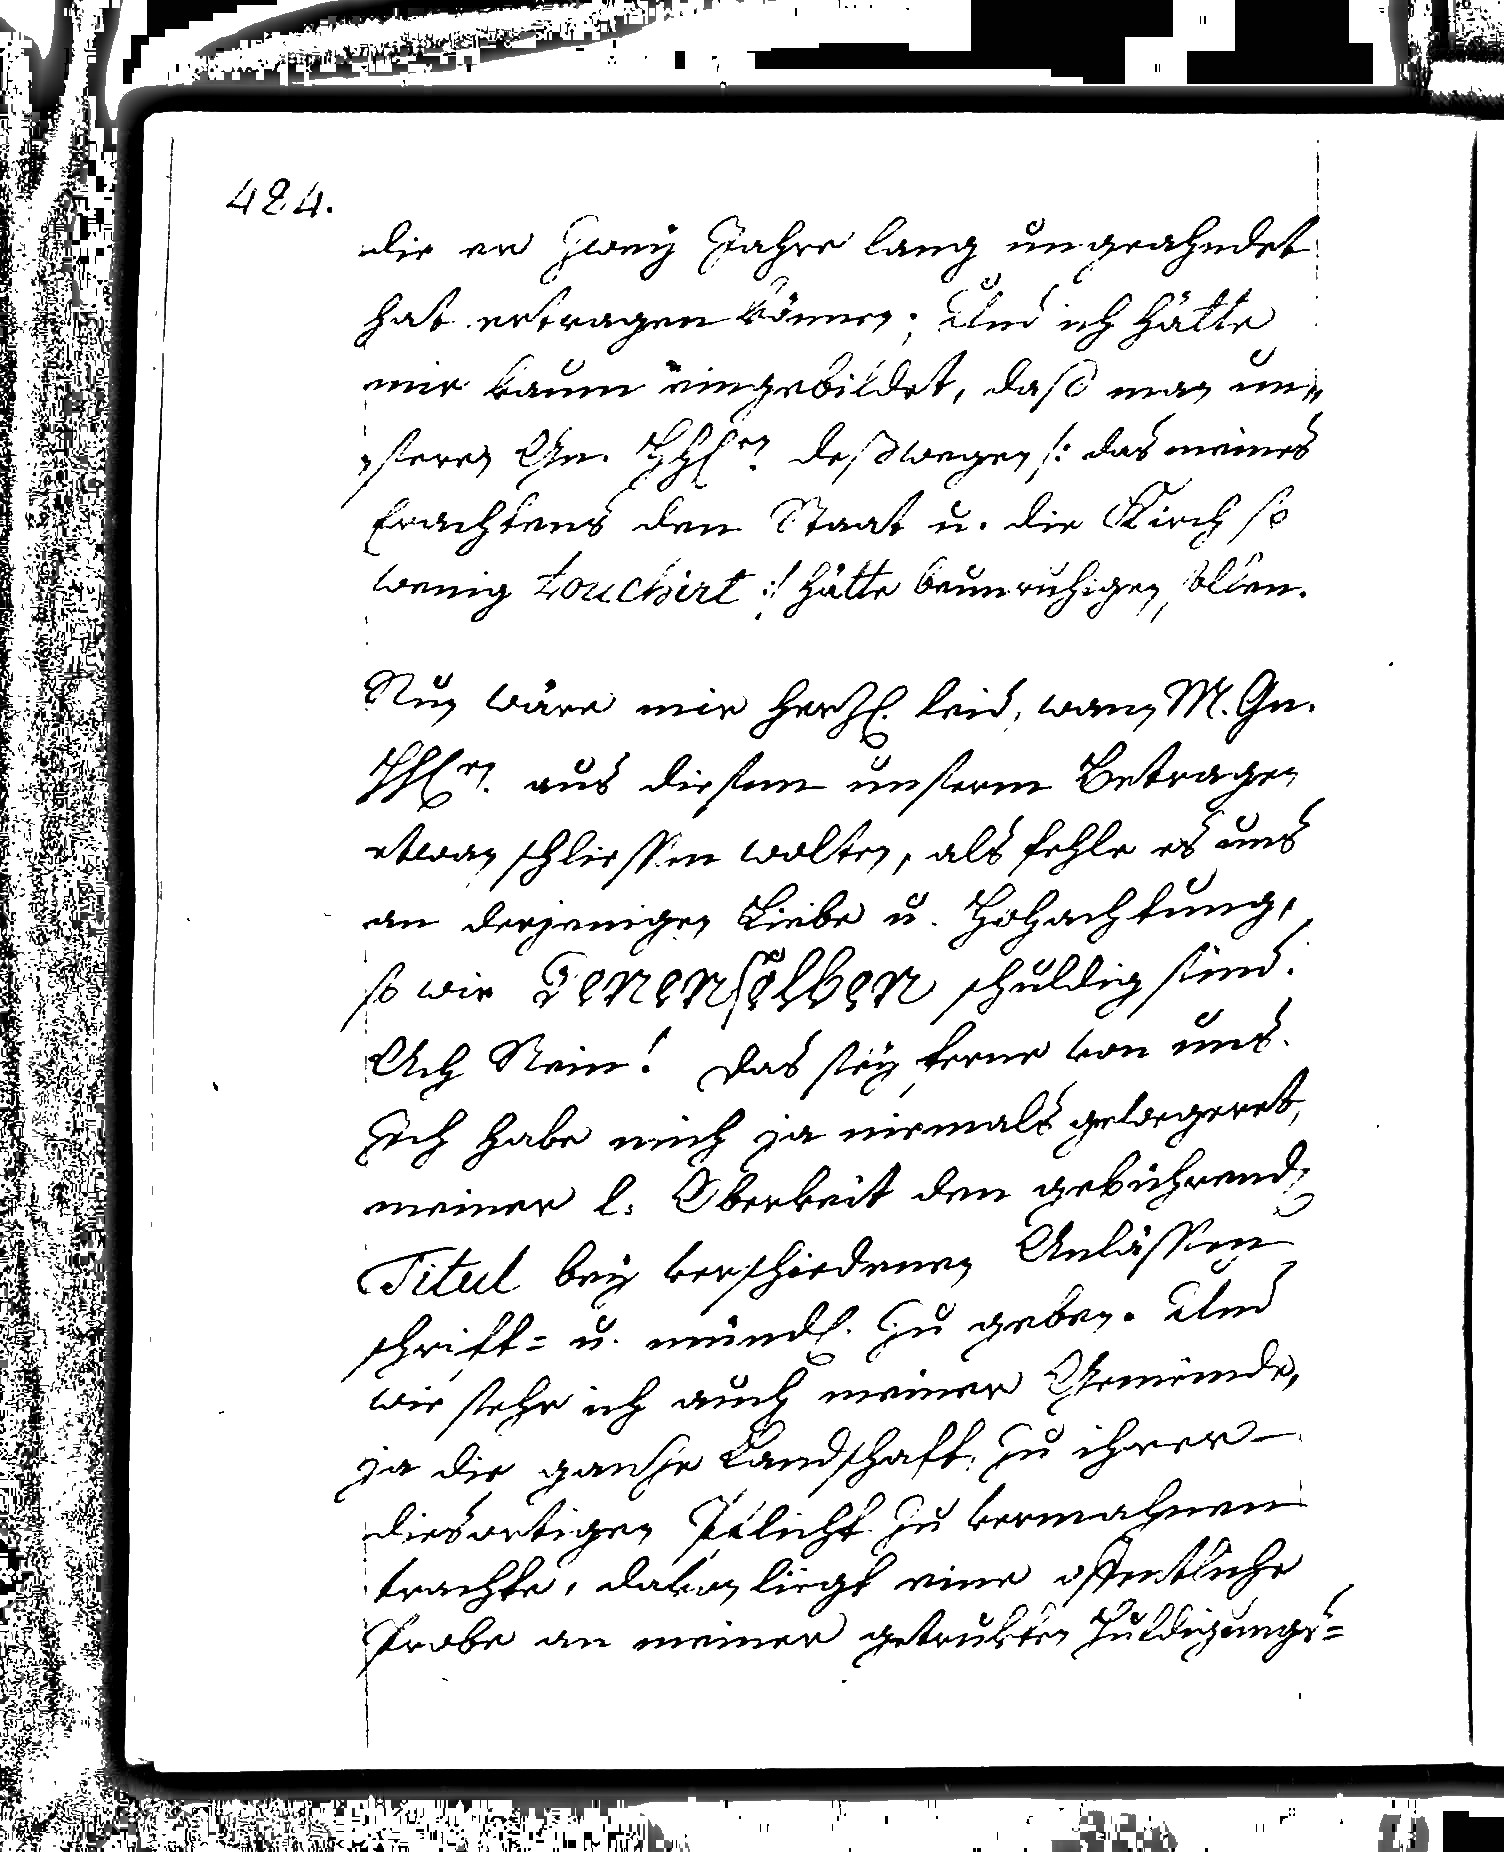 424.
die er zweÿ Jahre lang ungeahndet
hat ertragen können; Und ich hätte
mir kaum eingebildet, daß man un„
„seren Gn. HHErn. deßwegen /: das meines
Erachtens den Staat u. die Kirch so
wenig touchirt :/ hätte beunruhigen sollen.
Nun wäre mir herzl. leid, wann M. Gn.
HHErn. aus diesem unserem Betragen
etwan schliessen wolten, als fehle es uns
an derjenigen Liebe u. Hohachtung,
so wir Denenselben schuldig sind.
Ach Nein! Das seÿ ferne von uns.
Ich habe mich ja niemals gewegeret,
meiner l. Oberkeit den gebührend.
Titul beÿ verschiedenen Anlässen
schrift= u. mündl. zu geben. Und
wie sehr ich auch meiner Gemeinde,
ja die gantze Landschaft, zu ihrer
diesortigen Pflicht zu vermahnen
trachte, davon liegt eine offentliche
Probe an meiner getrukten Huldigungs=